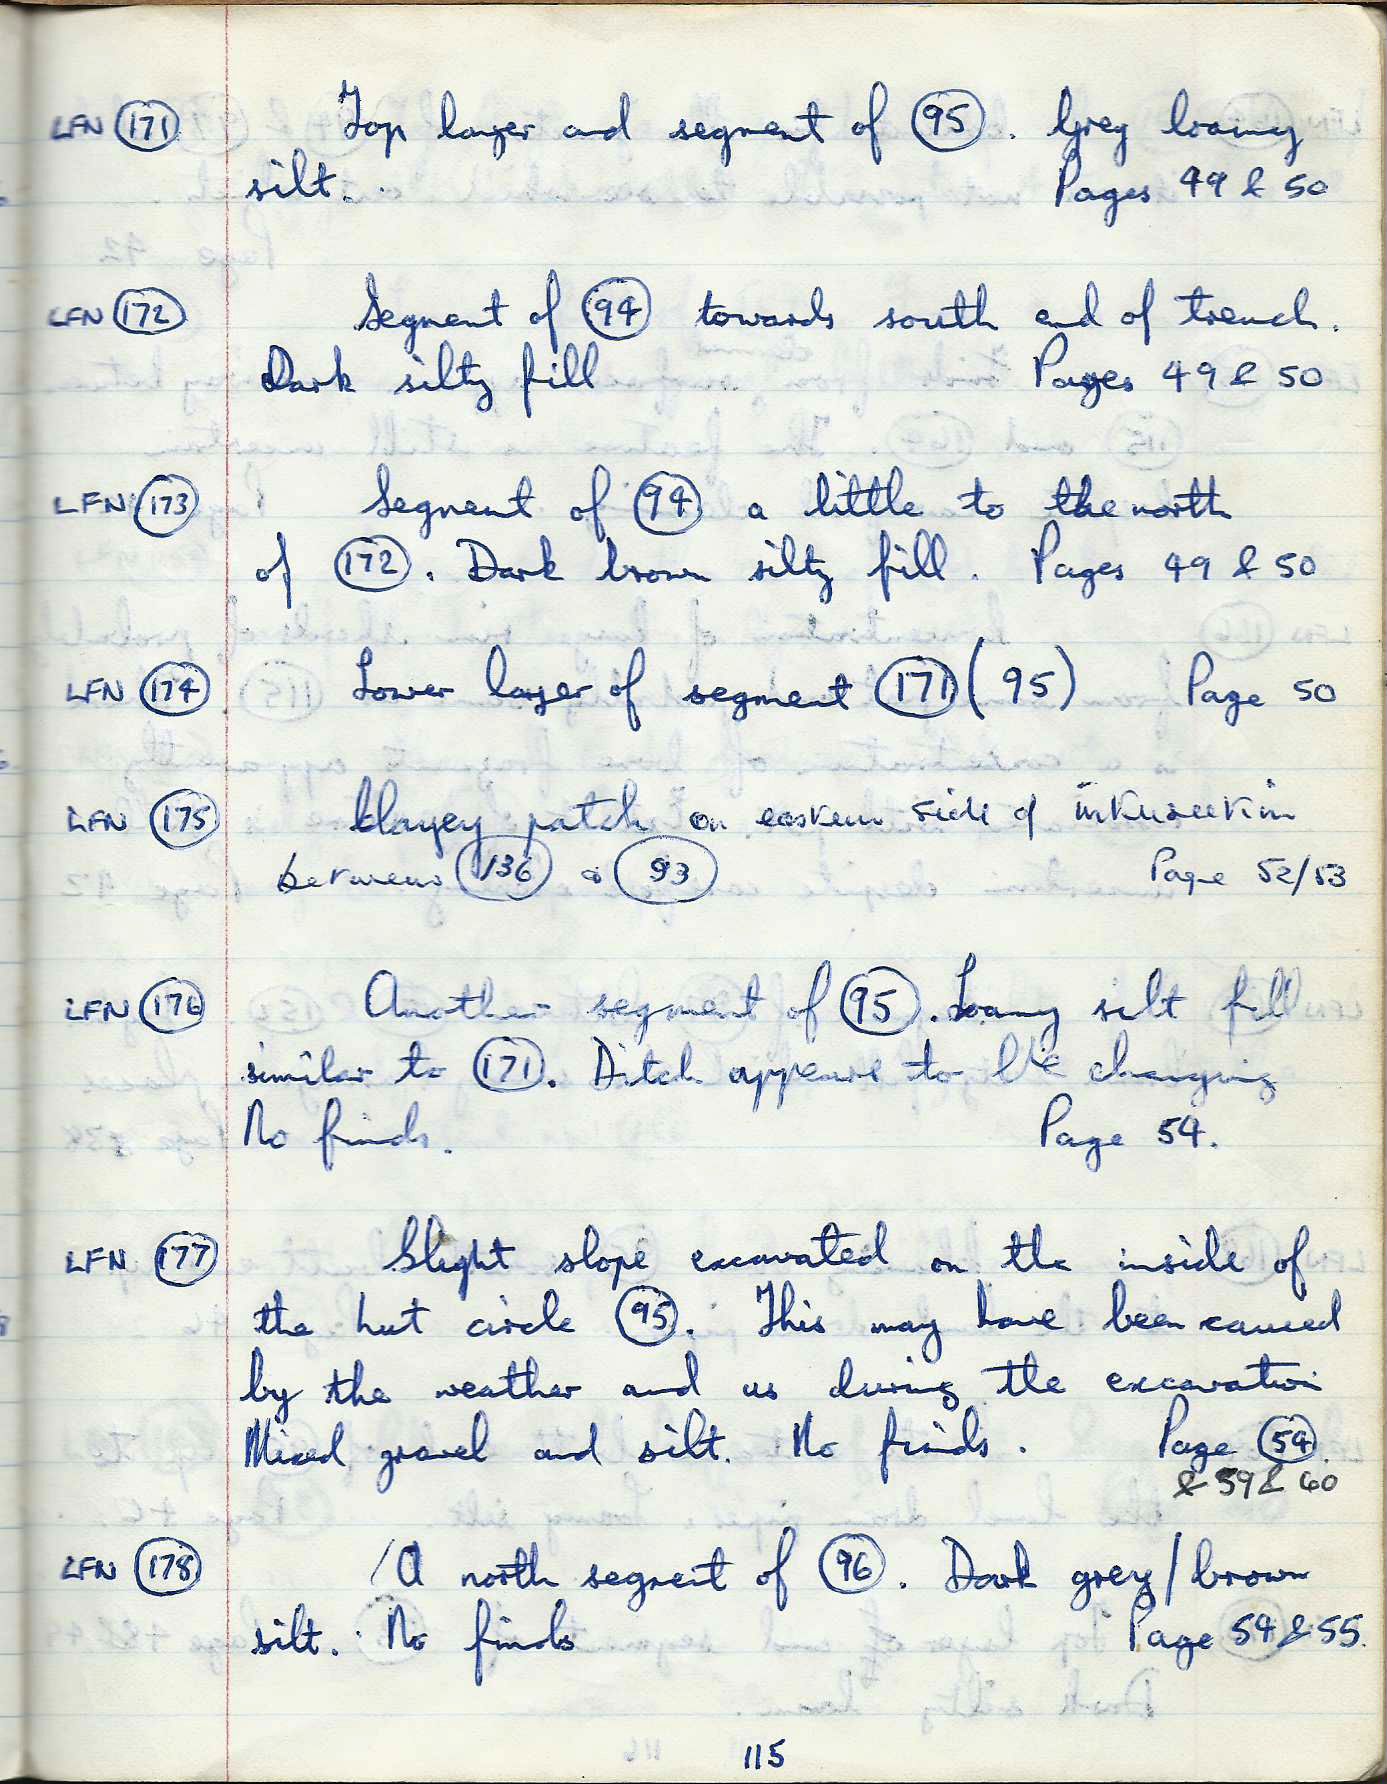 LFN 171 Top layer and segment of 95. Grey loamy
silt. Pages 49 & 50
LFN 172 Segment of 94 towards south end of trench.
Dark silty fill Pages 49 & 50
LFN 173 Segment of 94 a little to the north
of 172. Dark brown silty fill. Pages 49 & 50
LFN 174 Lower layer of segment 171 (95) Page 50
LFN 175 Clayey patch on eastern side of intersection
between 136 & 93 Page 52/53
LFN 176 Another segment of 95. Loamy silt fill
similar to 171. Ditch appears to be changing
No finds. Page 54.
LFN 177 Slight slope excavated on the inside of
the hut circle 95. This may have been caused
by the weather and us during the excavation
Mixed gravel and silt. No finds. Page 54.
& 59 & 60
LFN 178 A north segment of 96. Dark grey/brown
silt. No finds Page 54 & 55.
115